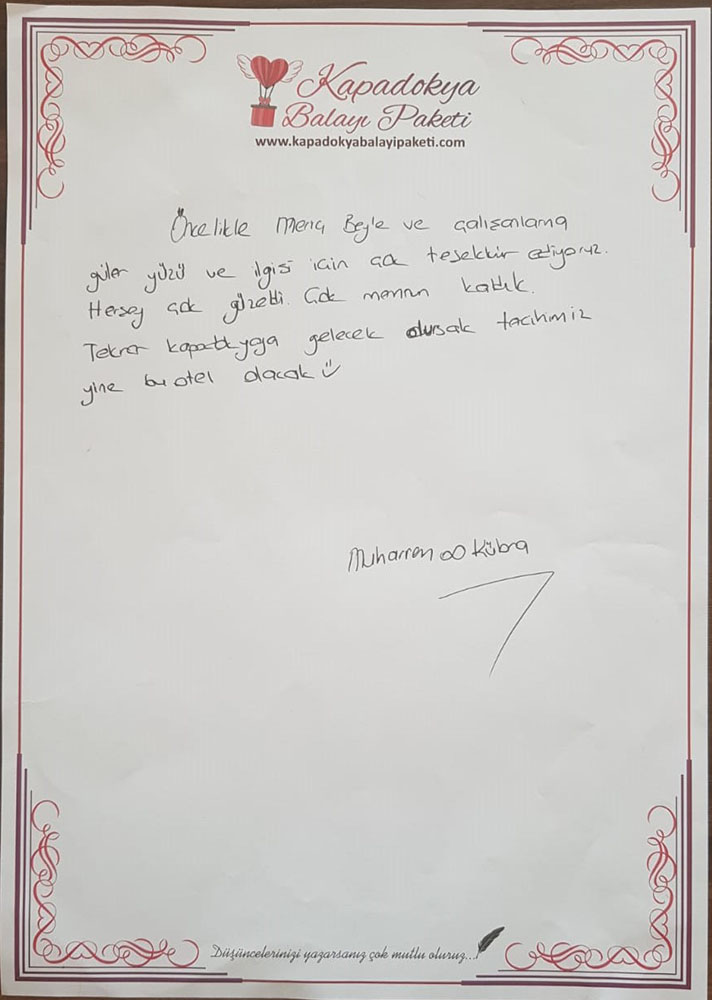 Kapadokya
Balayı Paketi
www.kapadokyabalayipaketi.com
Öncelikle Meriç Bey'le ve çalışanlarına
güler yüzü ve ilgisi için çok teşekkür ediyoruz.
Herşey çok güzeldi. Çok memnun kaldık.
Tekrar kapadokyaya gelecek olursak tercihimiz
yine bu otel olacak
Muharrem ∞ Kübra
Düşüncelerinizi yazarsanız çok mutlu oluruz...